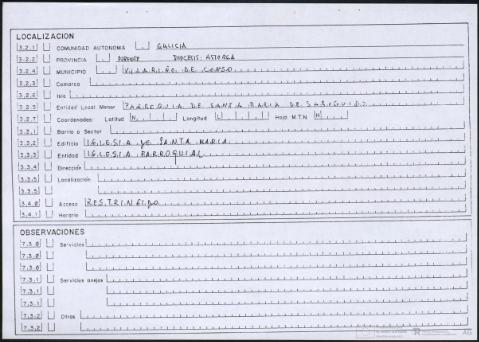 LOCALIZACION
3.2.1 COMUNIDAD AUTONOMA GALICIA
3.2.2 PROVINCIA DIOCESIS: ASTORGA
3.2.4 MUNICIPIO VILARIÑO DE CONSO
3.2.3 Comarca
3.2.4 Isla
3.2.5 Entidad Local Menor PARROQUIA DE SANTA MARIA DE
3.2.7 Coordenadas: Latitud N Longitud Hoja M.T.N. H
3.3.1 Barrio o Sector
3.3.2 Edificio IGLESIA de SANTA MARIA
3.3.3 Entidad IGLESIA PARROQUIAL
3.3.4 Dirección
3.3.5 Localización
3.3.5
3.4.0 Acceso RESTRINGIDO
3.4.1 Horario
OBSERVACIONES
7.3.0 Servicios
7.3.0
7.3.0
7.3.1 Servicios anejos
7.3.1
7.3.1
7.3.2 Otros
7.3.2